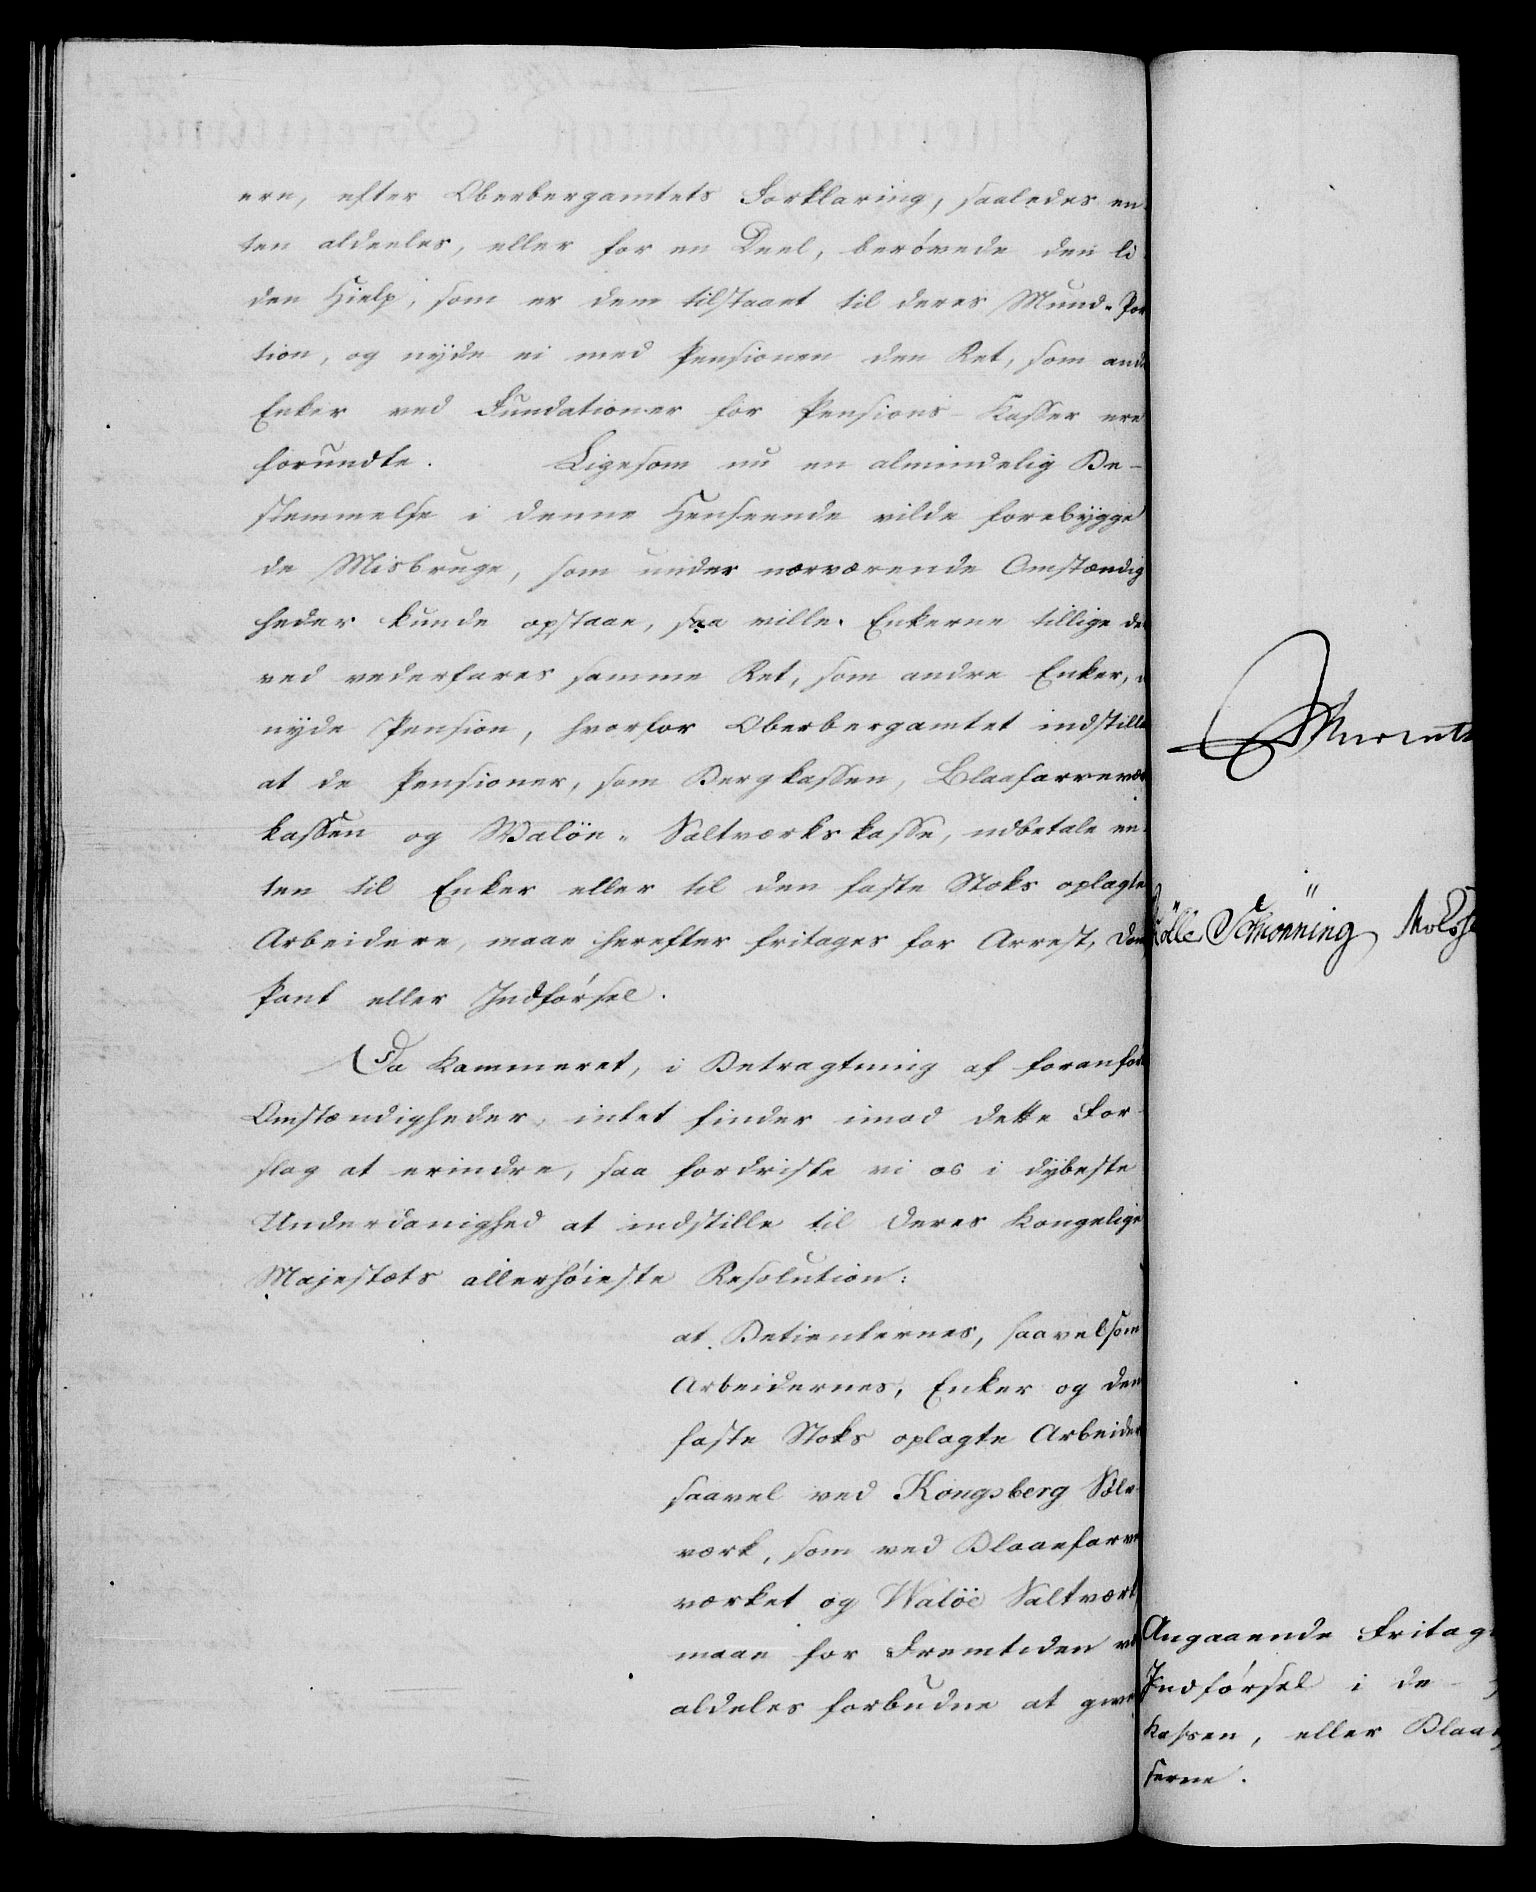 ere, efter Oberbergamtets Forklaring, saaledes en-
ten aldeeles, eller for en Deel, berøvede den li-
den Hielp, som er dem tilstaaet til deres Mund-Por
tion, og nyde ei med Pensionen den Ret, som and
Enker ved Fundationer for Pensions-Kasser ere
forundte. Ligesom nu en almindelig Be-
stemmelse i denne Henseende vilde forebygge
de Misbruge, som under nærværende Omstændig
heder kunde opstaae, saa ville Enkerne tillige de
ved vederfares samme Ret, som andre Enker,
nyde Pension, hvorfor Oberbergamtet indstille
at de Pensioner, som Bergkassen, Blaafarvevær
kassen og Waløe-Saltværkskasse, udbetale en-
ten til Enker eller til den faste Stoks oplagte
Arbeidere, maae herefter fritages for Arrest, Dom
Pant eller Indførsel.
Da Kammeret, i Betragtning af foranfør
Omstændigheder, intet finder imod dette For-
slag at erindre, saa fordriste vi os i dybeste
Underdanighed at indstille til Deres Kongelige
Majestæts allerhøieste Resolution:
at Betienternes, saavelsom
Arbeidernes, Enker og den
faste Stoks oplagte Arbeider
saavel ved Kongsberg Sølv-
værk, som ved Blaaefarve
værket og Waløe Saltværk
maae for Fremtiden
aldeles forbudne at give
Schønning
Angaaende Fritag
Indførsel i de
Kassen, eller Blaa
serne.